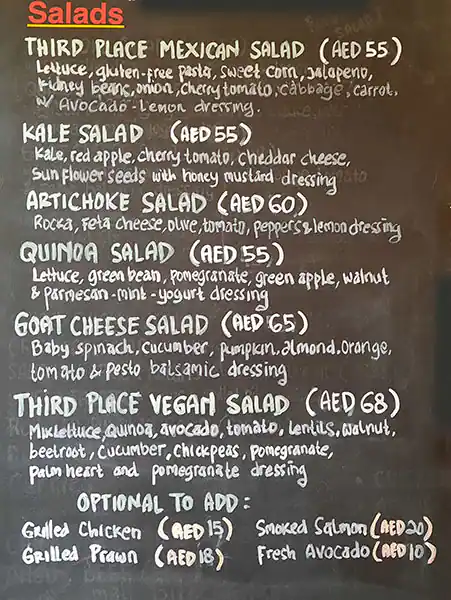 Salads
THIRD PLACE MEXICAN SALAD (AED 55)
Lettuce, gluten-free pasta, sweet corn, Jalapeno,
kidney beans, onion, cherry tomato, cabbage, carrot,
w/ Avocado-Lemon dressing.
KALE SALAD (AED 55)
Kale, red apple, cherry tomato, cheddar cheese,
Sunflower seeds with honey mustard dressing
ARTICHOKE SALAD (AED 60)
Rocka, Feta cheese, olive, tomato, peppers & lemon dressing
QUINOA SALAD (AED 55)
Lettuce, green bean, pomegranate, green apple, walnut
& parmesan-mint-yogurt dressing
GOAT CHEESE SALAD (AED 65)
Baby spinach, cucumber, pumpkin, almond, orange,
tomato & Pesto balsamic dressing
THIRD PLACE VEGAN SALAD (AED 68)
Mixlettuce, Quinoa, avocado, tomato, lentils, walnut,
beetroot, cucumber, chickpeas, pomegranate,
palm heart and pomegranate dressing
OPTIONAL TO ADD:
Grilled Chicken (AED 15) Smoked Salmon (AED 20)
Grilled Prawn (AED 18) Fresh Avocado (AED 10)